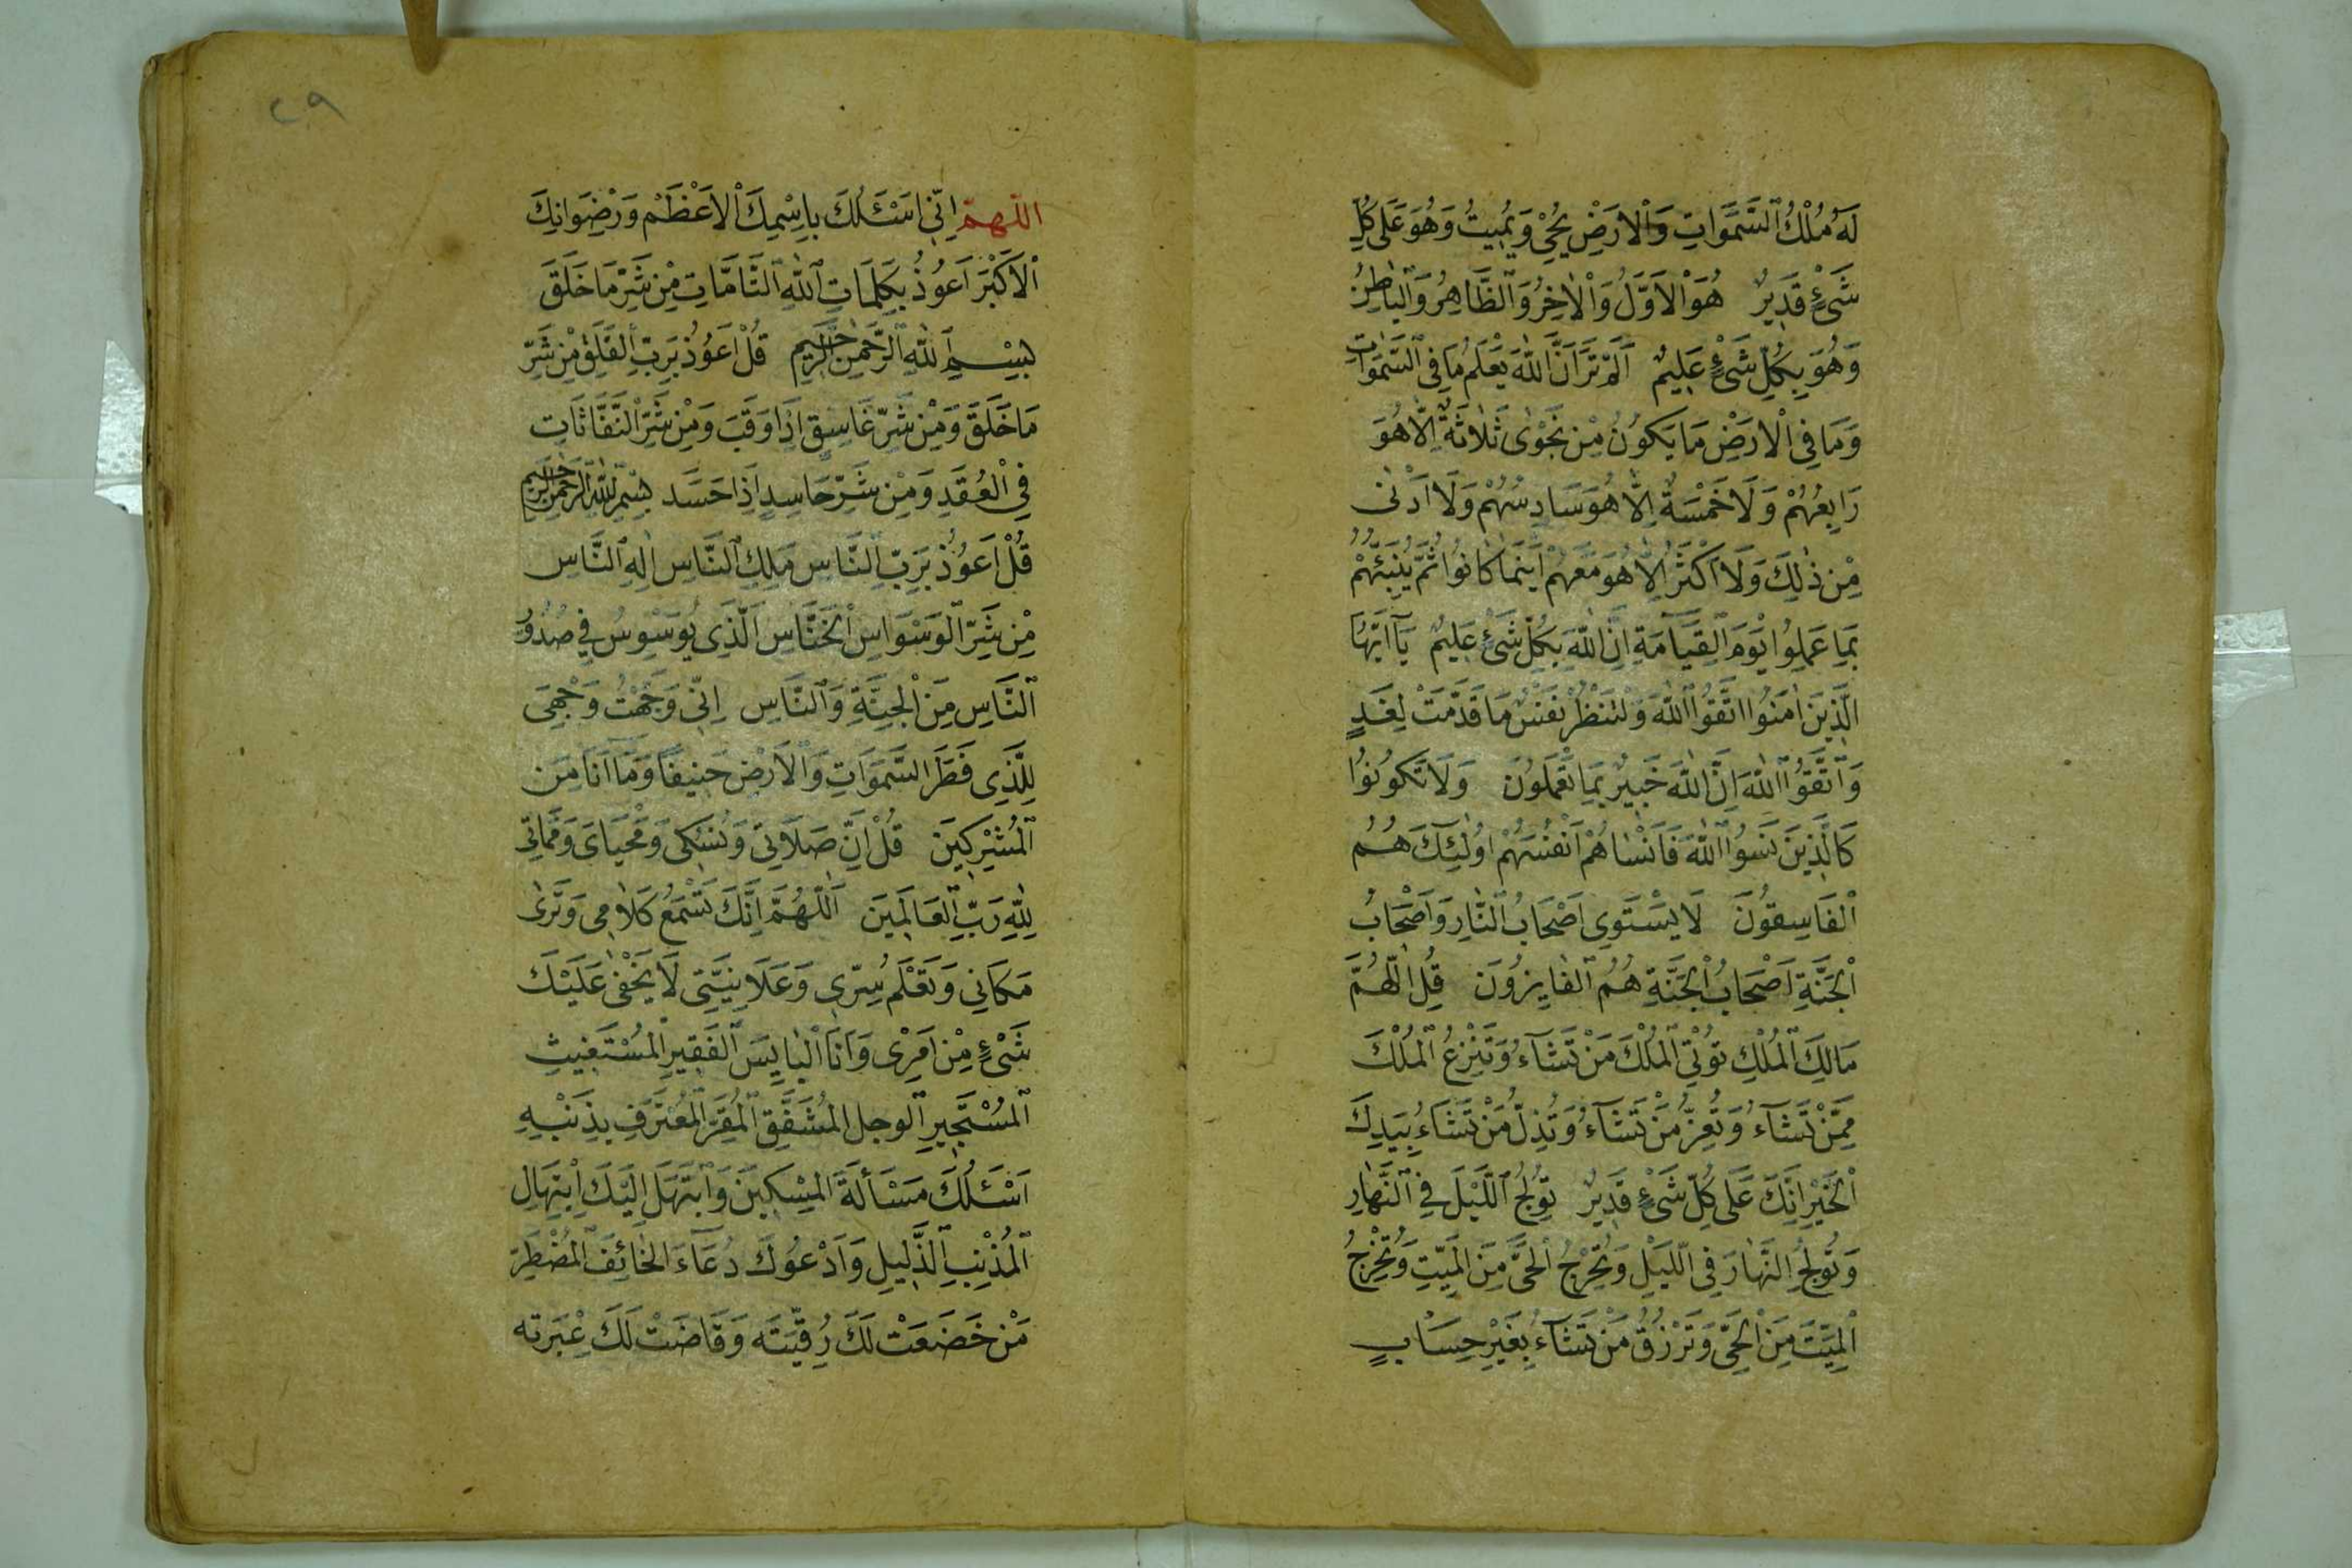 لَهُ مُلْكُ ٱلسَّمَّوَاتِ وَٱلْاَرَضْ يُحْيِ وَيُمِيتُ وَهُوَ عَلَى كُلِّ
شَىْءٍ قَدِيرٌ هُوَ ٱلْاَوَّلُ وَٱلْاٰخِرُ وَٱلظَّاهِرُ وَٱلْبَاطِنُ
وَهُوَ بِكُلِّ شَىْءٍ عَلِيمٌ اَلَمْ تَرَ اَنَّ اللّٰهَ يَعْلَمُ مَا فِى ٱلسَّمَوَاتِ
وَمَا فِى ٱلْاَرَضْ مَا يَكُونُ مِنْ نَجْوٰى ثَلَاثَةٌ اِلَّا هُوَ
رَابِعُهُمْ وَلَا خَمْسَةٌ اِلَّا هُوَ سَادِسُهُمْ وَلَا اَدْنٰى
مِنْ ذٰلِكَ وَلَا اَكْثَرَ اِلَّا هُوَ مَعَهُمْ اَيْنَمَا كَانُوا ثُمَّ يُنَبِّئُهُمْ
بِمَا عَمِلُوا يَوْمَ ٱلْقِيَامَةِ اِنَّ اللّٰهَ بِكُلِّ شَىْءٍ عَلِيمٌ يَآ اَيُّهَا
الَّذِينَ اٰمَنُوا اتَّقُوا ٱللّٰهَ وَلْتَنْظُرْ نَفْسٌ مَا قَدَّمَتْ لِغَدٍ
وَٱتَّقُوا ٱللّٰهَ اِنَّ اللّٰهَ خَبِيرٌ بِمَا تَعْمَلُونَ وَلَا تَكُونُوا
كَالَّذِينَ نَسُوا ٱللّٰهَ فَاَنْسَاهُمْ اَنْفُسَهُمْ اُولٰئِكَ هُمُ
ٱلْفَاسِقُونَ لَا يَسْتَوِى اَصْحَابُ ٱلنَّارِ وَاَصْحَابُ
ٱلْجَنَّةِ اَصْحَابُ ٱلْجَنَّةِ هُمُ ٱلْفَايِزُونَ قُلِ اللّٰهُمَّ
مَالِكَ ٱلْمُلْكِ تُؤْتِى ٱلْمُلْكَ مَنْ تَشَآءُ وَتَنْزِعُ ٱلْمُلْكَ
مِمَّنْ تَشَآءُ وَتُعِزُّ مَنْ تَشَآءُ وَتُذِلُّ مَنْ تَشَآءُ بِيَدِكَ
ٱلْخَيْرُ اِنَّكَ عَلَى كُلِّ شَىْءٍ قَدِيرٌ تُولِجُ ٱللَّيْلَ فِى ٱلنَّهَارِ
وَتُولِجُ النَّهَارَ فِى الَّليْلِ وَتُخْرِجُ ٱلْحَىَّ مِنَ الْمَيِّتِ وَتُخْرِجُ
ٱلْمَيِّتَ مِنَ ٱلْحَىِّ وَتَرْزُقُ مَنْ تَشَآءُ بِغَيْرِ حِسَابٍ
٢٩
اللّهمّ اِنِّى اَسْئَلُكَ بِاِسْمِكَ ٱلْاَعْظَمْ وَرِضْوَانِكَ
ٱلْاَكْبَرَ اَعُوُذُ بِكَلِمَاتِ ٱللّٰهِ ٱلتَّامَّاتِ مِنْ شَرِّ مَا خَلَقَ
بِسْــمِ ٱللّٰهِ ٱلرَّحْمٰنِ ٱلرَّحِيمِ قُلْ اَعُوُذُ بِرَبِّ ٱلْفَلَقِ مِنْ شَرِّ
مَا خَلَقَ وَمِنْ شَرِّ غَاسِقٍ اِذَا وَقَبَ وَمِنْ شَرِّ ٱلنَّفَّاثَاتِ
فِى ٱلْعُقَدِ وَمِنْ شَرِّ حَاسِدٍ اِذَا حَسَدَ بِسْمِ اللّٰهِ الرَّحْمٰنِ الرَّحِيمِ
قُلْ اَعُوُذُ بِرَبِّ ٱلنَّاسِ مَلِكِ ٱلنَّاسِ اِلٰهِ ٱلنَّاسِ
مِنْ شَرِّ ٱلْوَسْوَاسِ ٱلْخَنَّاسِ اَلَّذِى يُوَسْوِسُ فِى صُدُورِ
ٱلنَّاسِ مِنَ ٱلْجِنَّةِ وَٱلنَّاسِ اِنِّى وَجَّهْتُ وَجْهِىَ
لِلَّذِى فَطَرَ السَّمَوَاتِ وَٱلْاَرَضْ حَنِيفًا وَمَآ اَنَا مِنَ
ٱلْمُشْرِكِينَ قُلْ اِنَّ صَلَاتِى وَنُسُكِى وَمَحْيَاىَ وَمَمَاتِى
لِلّٰهِ رَبِّ ٱلْعَالَمِينَ اَللّٰهُمَّ اِنَّكَ تَسْمَعُ كَلَامِى وَتَرٰى
مَكَانِى وَتَعْلَمُ سِرِّى وَعَلَانِيَتِى لَا يَخْفٰى عَلَيْكَ
شَىْءٍ مِنْ اَمْرِى وَاَنَا ٱلْبَايِسَ ٱلْفَقِيرِ ٱلْمُسْتَغِيثِ
ٱلْمُسْتَجِيرِ ٱلْوجل الْمُشْفِقِ ٱلْمُقِرِّ ٱلْمُعْتَرِفِ بِذَنْبِهِ
اَسْئَلُكَ مَسْأَلَةَ الْمِسْكِينَ وَٱبْتَهَلَ اِلَيْكَ اِبْتِهَالِ
ٱلْمُذْنِبِ ٱلذَّلِيلِ وَاَدْعُوكَ دُعَآءَ الْخَائِفِ ٱلْمُضْطَرِّ
مَنْ خَضَعَتْ لَكَ رُقِيَّتَه وَفَاضَتْ لَكَ عِبْرَته